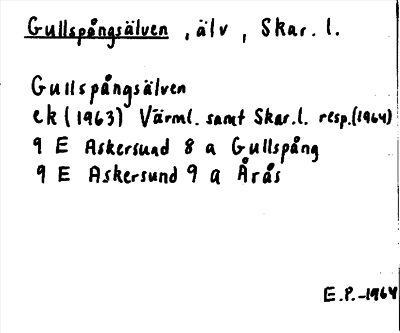 Gullspångsälven, älv, Skar. l.
Gullspångsälven
ek (1963) Värml. samt Skar. l. resp. (1964)
9 E Askersund 8 a Gullspång
9 E Askersund 9 a Årås
E. P. -1964